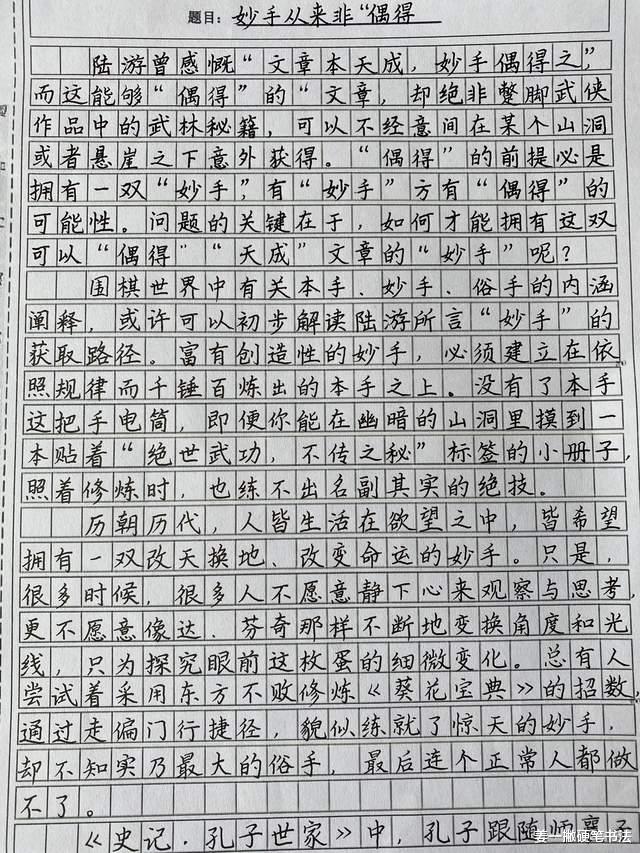 题目：妙手从来非“偶得
陆游曾感慨“文章本天成，妙手偶得之”，
而这能够“偶得”的“文章，却绝非蹩脚武侠
作品中的武林秘籍，可以不经意间在某个山洞
或者悬崖之下意外获得。“偶得”的前提必是
拥有一双“妙手”，有“妙手”方有“偶得”的
可能性。问题的关键在于，如何才能拥有这双
可以“偶得”“天成”文章的“妙手”呢？
围棋世界中有关本手、妙手、俗手的内涵
阐释，或许可以初步解读陆游所言“妙手”的
获取路径。富有创造性的妙手，必须建立在依
照规律而千锤百炼出的本手之上。没有了本手
这把手电筒，即便你能在幽暗的山洞里摸到一
本贴着“绝世武功，不传之秘”标签的小册子，
照着修炼时，也练不出名副其实的绝技。
历朝历代，人皆生活在欲望之中，皆希望
拥有一双改天换地、改变命运的妙手。只是，
很多时候，很多人不愿意静下心来观察与思考，
更不愿意像达．芬奇那样不断地变换角度和光
线，只为探究眼前这枚蛋的细微变化。总有人
尝试着采用东方不败修炼《葵花宝典》的招数，
通过走偏门行捷径，貌似练就了惊天的妙手，
却不知实乃最大的俗手，最后连个正常人都做
不了。
《史记·孔子世家》中，孔子跟随师襄子
姜一撇硬笔书法